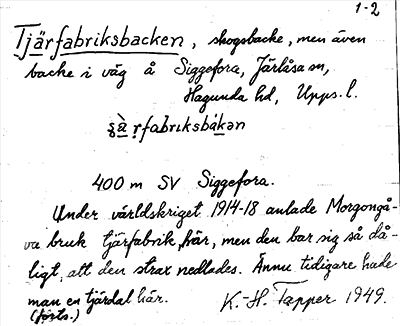 1-2
Tjärfabriksbacken, skogsbacke, men även
backe i väg å Siggefora, Järlåsa sn,
Hagunda hd, Upps. l.
ṣä̀ṛfabriksbákən
400 m SV Siggefora.
Under världskriget 1914-18 anlade Morgongå-
va bruk tjärfabrik här, men den bar sig så då-
ligt, att den strax nedlades. Ännu tidigare hade
man en tjärdal här.
(forts.)
K.-H. Tapper 1949.